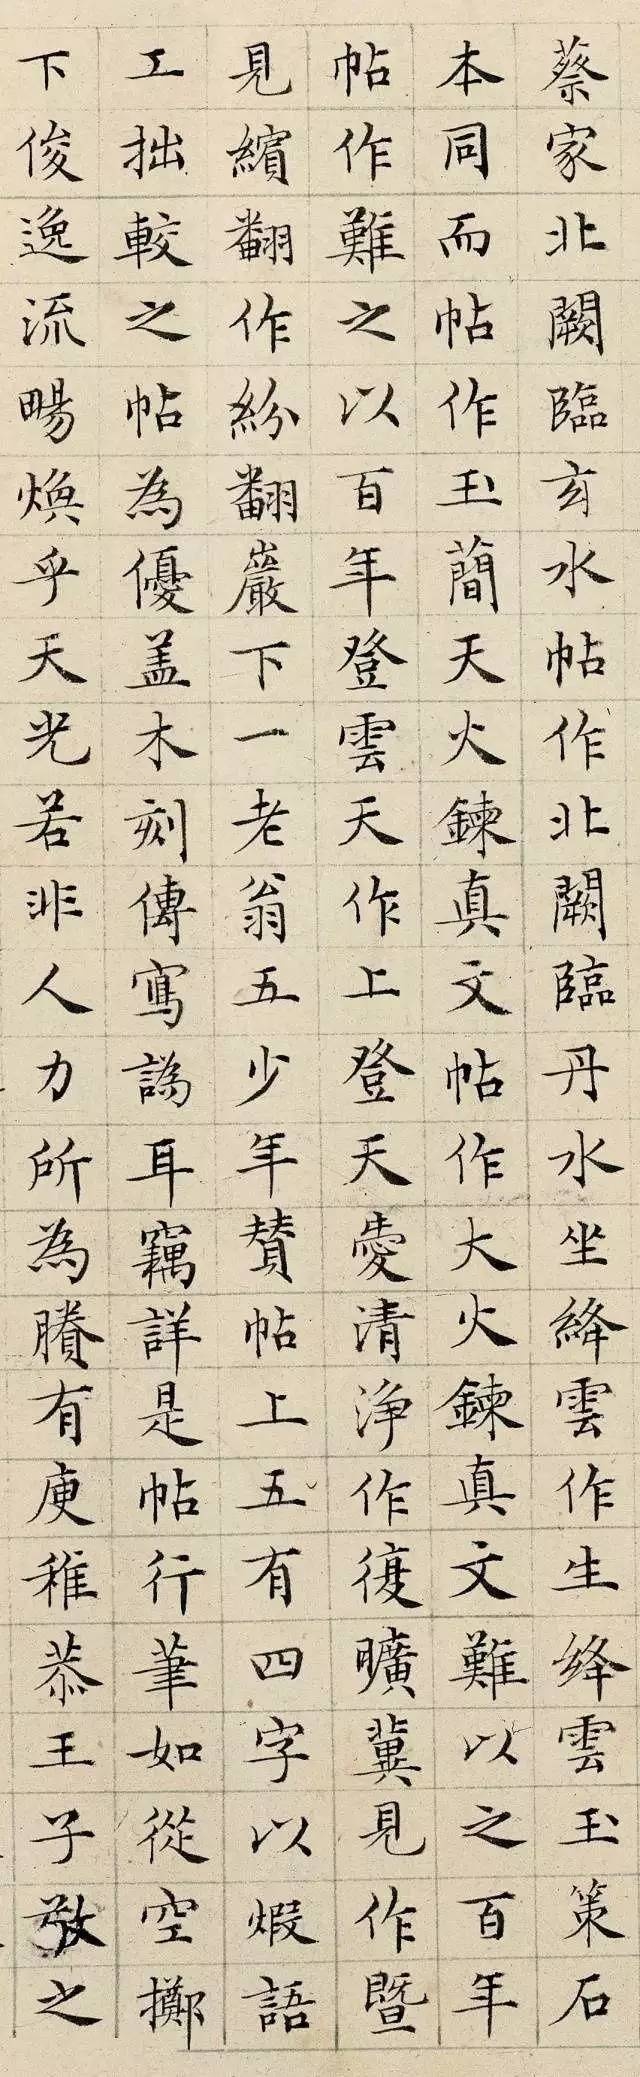 蔡家北闕臨玄水帖作北闕臨丹水坐絳雲作生絳雲玉策石
本同而帖作玉簡天火鍊真文帖作大火鍊真文難以之百年
帖作難之以百年登雲天作上登天愛清淨作復曠冀見作暨
見繽翻作紛翻巖下一老翁五少年賛帖上五有四字以煆語
工拙較之帖為優盖木刻傳寫譌耳竊詳是帖行筆如從空擲
下俊逸流暢煥乎天光若非人力所為賸有庾稚恭王子敬之